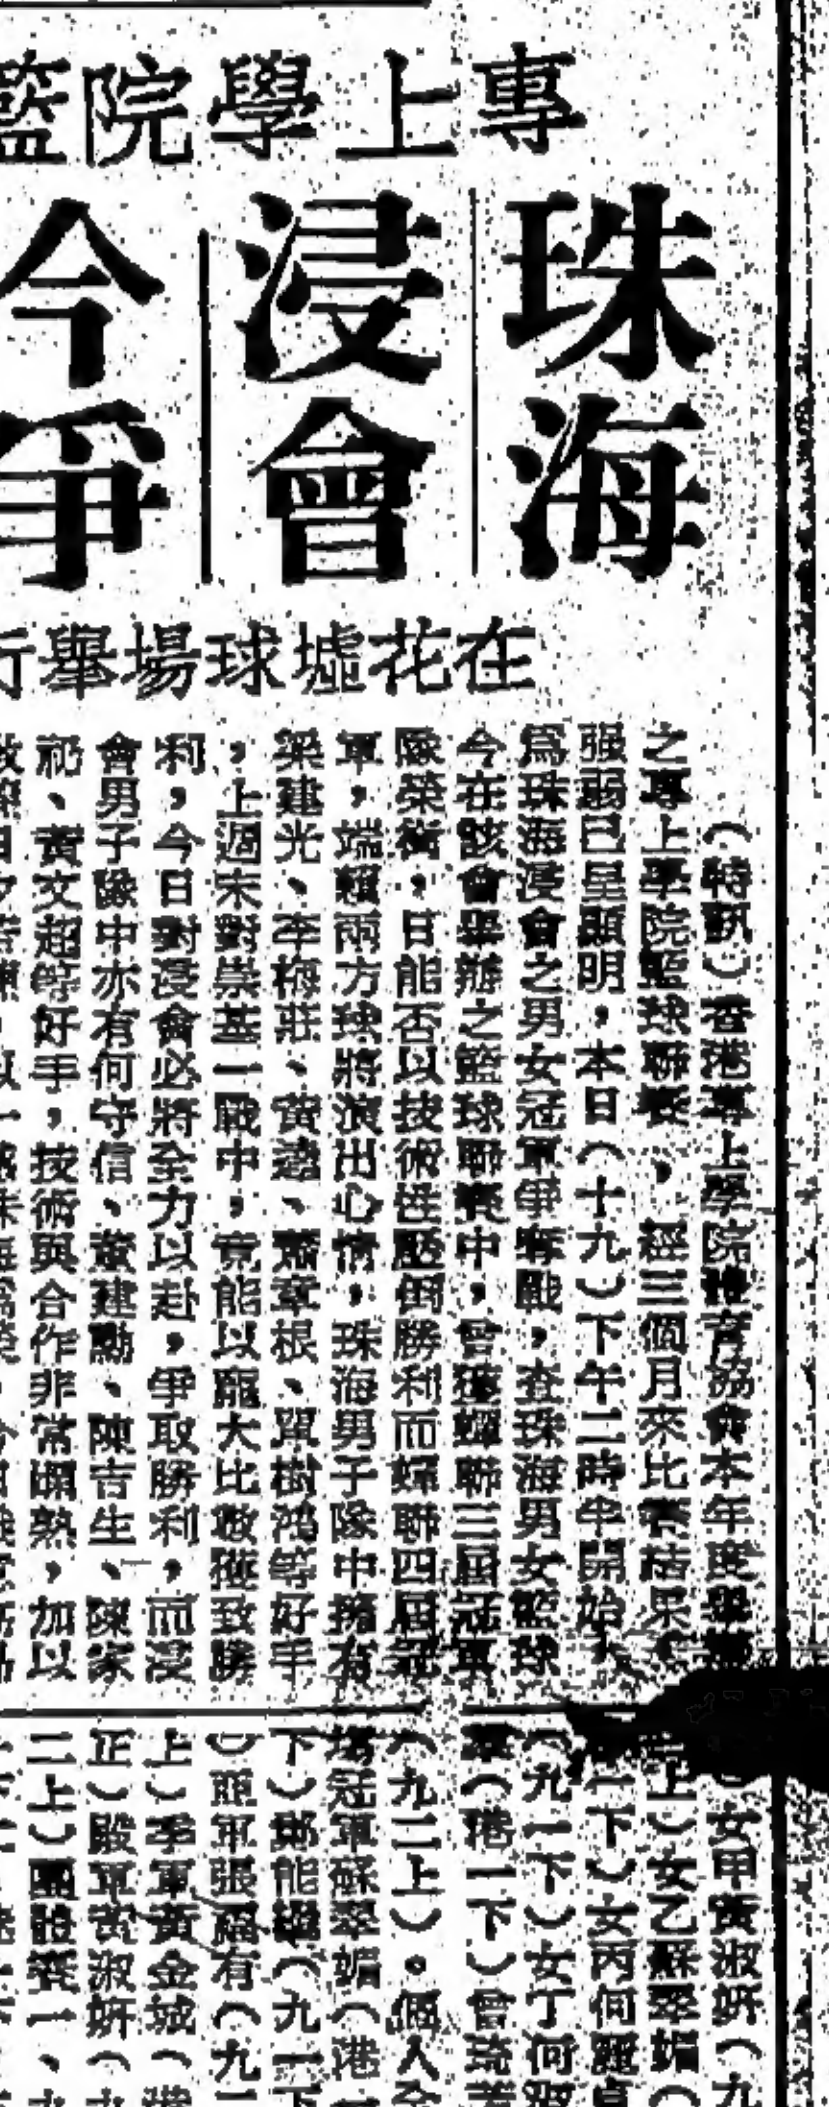 專上學院籃
珠海
浸會
今爭
在花墟球場舉行
（特訊）香港專上學院體育協會本年度舉辦
之專上學院籃球聯賽，經三個月來比賽結果
强弱已呈顯明，本日（十九）下午二時半開始
爲珠海浸會之男女冠軍爭奪戰，查珠海男女籃球
今在該會舉辦之籃球聯賽中，曾獲蟬聯三屆冠軍
隊榮銜，日能否以技術性壓倒勝利而蟬聯四屆冠
軍，端賴兩方球將演出心情，珠海男子隊中擁有
梁建光、李梅莊、黄遠、蕭章根、單樹鴻等好手
，上週末對崇基一戰中，竟能以龐大比數獲致勝
利，今日對浸會必將全力以赴，爭取勝利，而浸
會男子隊中亦有何守信、董建勳、陳吉生、陳家
祀、黄文超等好手，技術與合作非常嫻熟，加以
女甲黄淑妍（九
上）女乙蘇翠媚（
一下）女丙何麗貞
（九一下）女丁何淑
（港一下）曾琉
（九二上）。個人全
場冠軍蘇翠媚（港一
下）鄭能繼（九一下
）亞軍張福有（九一
上）季軍黄金城（港
正）殿軍黄淑妍（九
二上）團體賽一、九